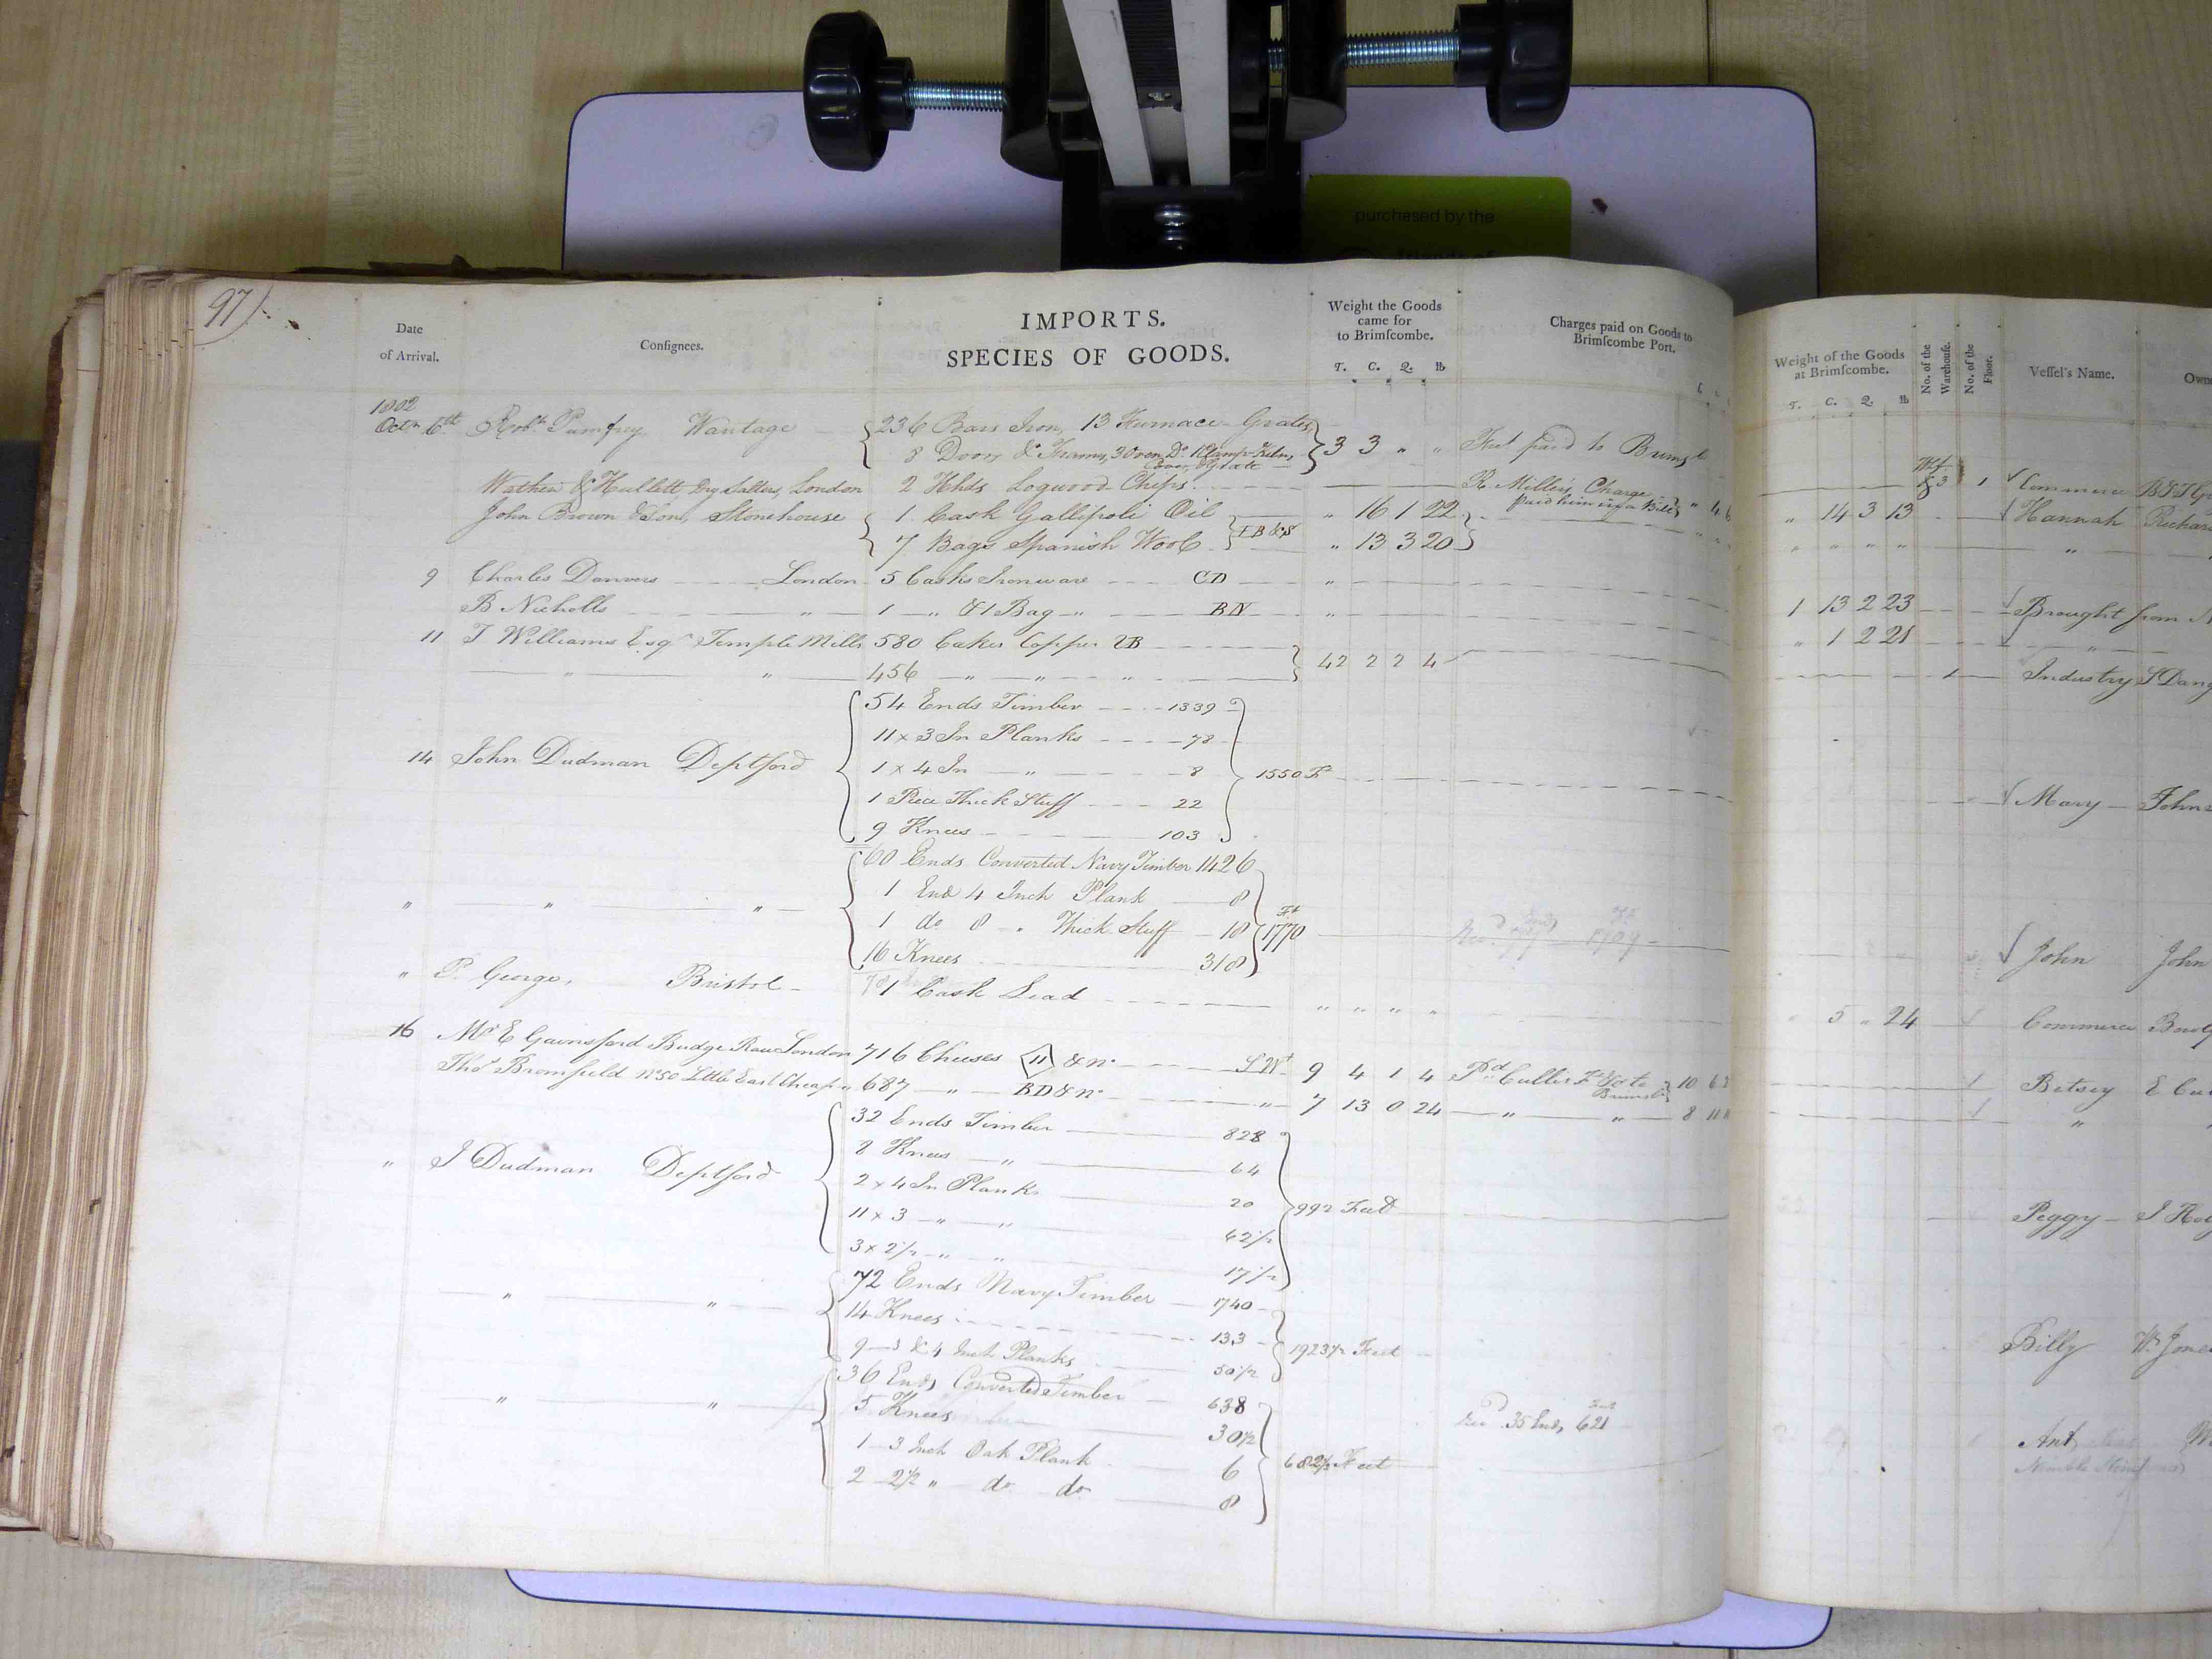 purchased by the
97)
Date of Arrival.
Consignees.
IMPORTS.
SPECIES OF GOODS.
Weight the Goods came for to Brimscombe.
T. C. Q. lb
Charges paid on Goods to Brimscombe Port.
Weight of the Goods at Brimscombe.
T. C. Q. lb
No. of the Warehouse.
No. of the Floor.
Vessel's Name.
1802
Octr. 6th Robt. Pumfrey Wantage 236 Bars Iron, 13 Furnace Grates 3 3 " " Frt paid to
8 Doors & Frames, 3 Oven Do.
Wathen & Hullett, Dry Salters, London 2 Hhds Logwood Chips R. Miller's Charge 1 Commerce
John Brown & Son, Stonehouse 1 Cask Gallipoli Oil " 16 1 22 paid him in a Bill " 14 3 13 Hannah
7 Bags Spanish Wool IB&S " 13 3 20 " " " " "
9 Charles Danvers London 5 Casks Ironware CD " 1 13 2 23 Brought from
B Nicholls " 1 " & 1 Bag " BN " " 1 2 21 "
11 T Williams Esqr Temple Mills 580 Cakes Copper
" " 456 " " " 42 2 2 4 Industry
14 John Dudman Deptford 54 Ends Timber 1339
11 x 3 In Planks 78
1 x 4 In " 8 1550 Ft Mary John
1 Piece Thick Stuff 22
9 Knees 103
" " " 60 Ends Converted Navy Timber 1426
1 End 4 Inch Plank 8
1 do 8 " Thick Stuff 18 1770 Ft John John
16 Knees 318
" P. George, Bristol 1 Cask Lead " " " " 5 " 24 Commerce
16 Mr E Gainsford Budge Row London 716 Cheeses 11 9 4 1 4 Pd Cullis 10 6 Betsey
Thos Bromfield No 50 Little East Cheap " 687 " BD 7 13 0 24 " " 8 11 "
" J Dudman Deptford 32 Ends Timber 828
8 Knees " 64
2 x 4 In Planks 20 992 Feet Peggy
11 x 3 " " 62 1/2
3 x 2 1/2 " " 17 1/2
" " 72 Ends Navy Timber 1740
14 Knees 133 1923 1/2 Feet Billy Wm Jones
9 3 & 4 Inch Planks 50 1/2
" " 36 Ends Converted Timber 638
5 Knees 30 1/2 35 Ends 621 Ant
1 3 Inch Oak Plank 6 682 1/2 Feet
2 2 1/2 " do do 8